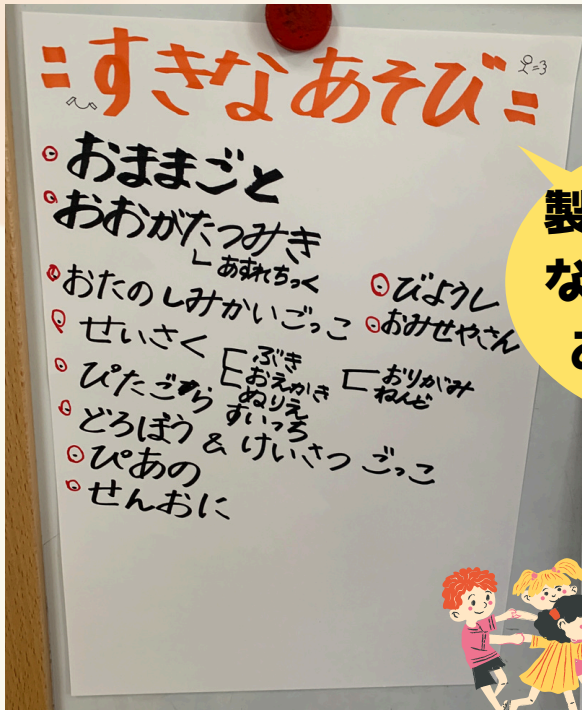 =すきなあそび=
おままごと
おおがたつみき
あすれちっく
おたのしみかいごっこ
びようし
せいさく
おみせやさん
ぶき
おえかき
ぬりえ
おりがみ
ねんど
ぴたごら すいっち
どろぼう & けいさつ ごっこ
ぴあの
せんおに
製
な